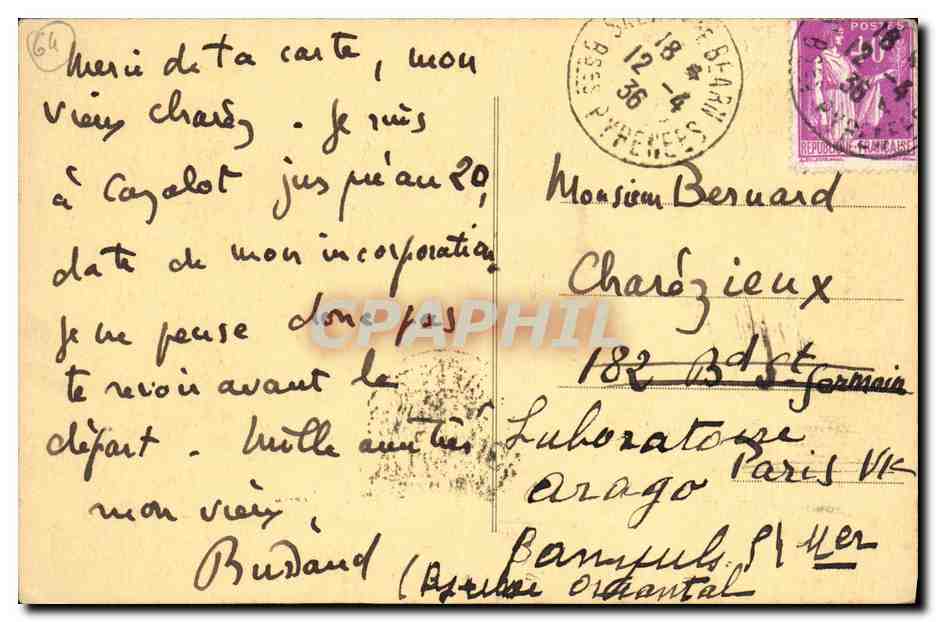 64
Merci de ta carte, mon
vieux Charéz. Je suis
à Cazalot jusqu'au 20,
date de mon incorporation.
Je ne pense donc pas
te revoir avant le
départ. Mille amitiés
mon vieux,
SALIES DE BEARN
18 *
12 -4
36
BSSES PYRENEES
POSTES
REPUBLIQUE FRANÇAISE
Monsieur Bernard
Charézieux
182 Bd St Germain
Paris VIe
Laboratoire
Arago
Banyuls S/ Mer
Orientales
CPAPHIL